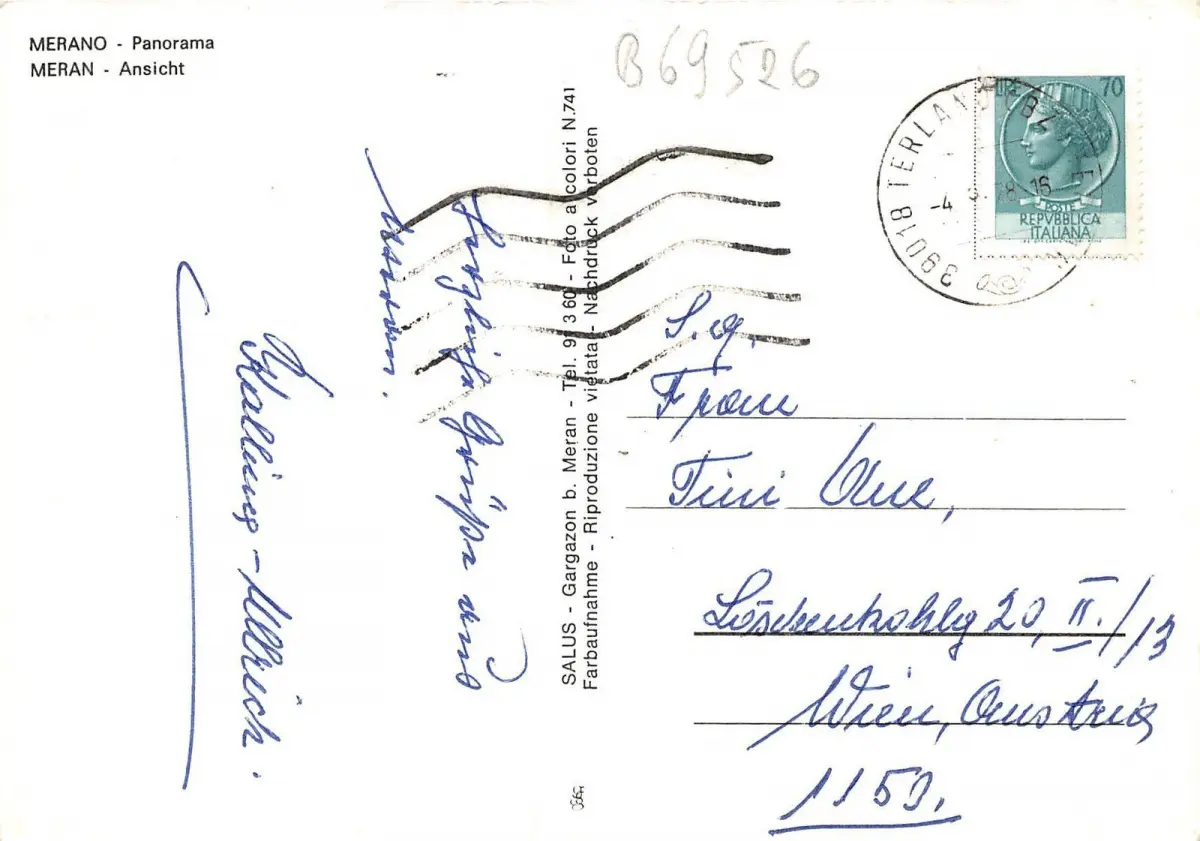 MERANO - Panorama
MERAN - Ansicht
B69526
LIRE 70
POSTE
REPVBBLICA
ITALIANA
39018 TERLANO (BZ)
-4. 78-16
SALUS - Gargazon b. Meran - Tel. 97 3 60 - Foto a colori N.741
Farbaufnahme - Riproduzione vietata - Nachdruck verboten
Herzliche Grüße aus
Meran.
Kalling-Ullrich.
S. g.
Frau
Tini
Löschenkohlg 20, II./13
Wien, Austria
1150.